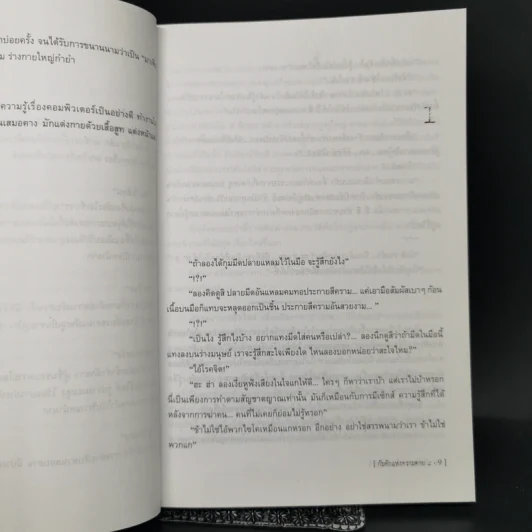 บ่อยครั้ง จนได้รับการขนานนามว่าเป็น
ร่างกายใหญ่กำยำ
ความรู้เรื่องคอมพิวเตอร์เป็นอย่างดี
มักแต่งกายด้วยเสื้อสูท
1
"ถ้าลองได้กุมมีดปลายแหลมไว้ในมือ จะรู้สึกยังไง"
"!?!"
"ลองคิดดูสิ ปลายมีดอันแหลมคมทอประกายสีคราม... แค่เอามือสัมผัสเบาๆ ก้อน
เนื้อบนมือก็แทบจะหลุดออกเป็นชิ้น ประกายสีครามอันสวยงาม... "
"!?!"
"เป็นไง รู้สึกไงบ้าง อยากแทงมีดใส่คนหรือเปล่า?... ลองนึกดูสิว่าถ้ามีดในมือนี้
แทงลงบนร่างมนุษย์ เราจะรู้สึกสะใจเพียงใด ไหนลองบอกหน่อยว่าสะใจไหม?"
"ไอ้โรคจิต!"
"ฮะ ฮ่า ลองเงี่ยหูฟังเสียงในใจแกให้ดี... ใครๆ ก็หาว่าเราบ้า แต่เราไม่บ้าหรอก
นี่เป็นเพียงการทำตามสัญชาตญาณเท่านั้น มันก็เหมือนกับการมีเซ็กส์ ความรู้สึกที่ได้
หลังจากการฆ่าคน... คนที่ไม่เคยก็ย่อมไม่รู้หรอก"
"ข้าไม่ใช่ไอ้พวกโรคจิตเหมือนแกหรอก อีกอย่าง อย่าใช้สรรพนามว่าเรา ข้าไม่ใช่
พวกแก"